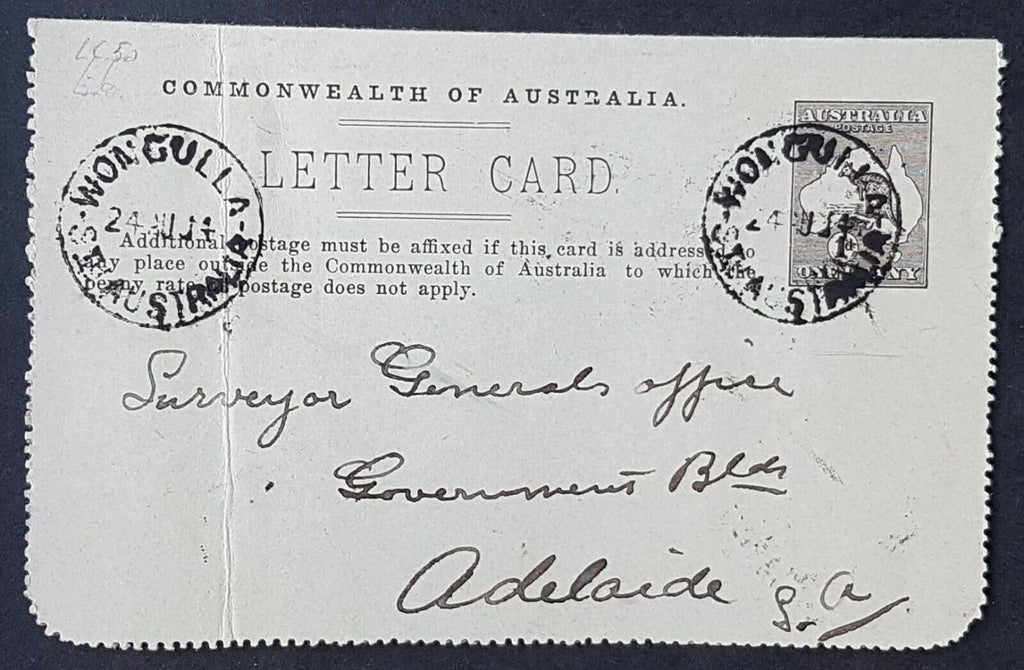 LC50
COMMONWEALTH OF AUSTRALIA.
LETTER CARD.
AUSTRALIA
POSTAGE
1d
ONE PENNY
WONGULLA
24 JU 14
STH AUSTRALIA
WONGULLA
24 JU 14
STH AUSTRALIA
Additional postage must be affixed if this card is addressed to
any place outside the Commonwealth of Australia to which the
penny rate of postage does not apply.
Surveyor Generals office
Government Blds
Adelaide S. A